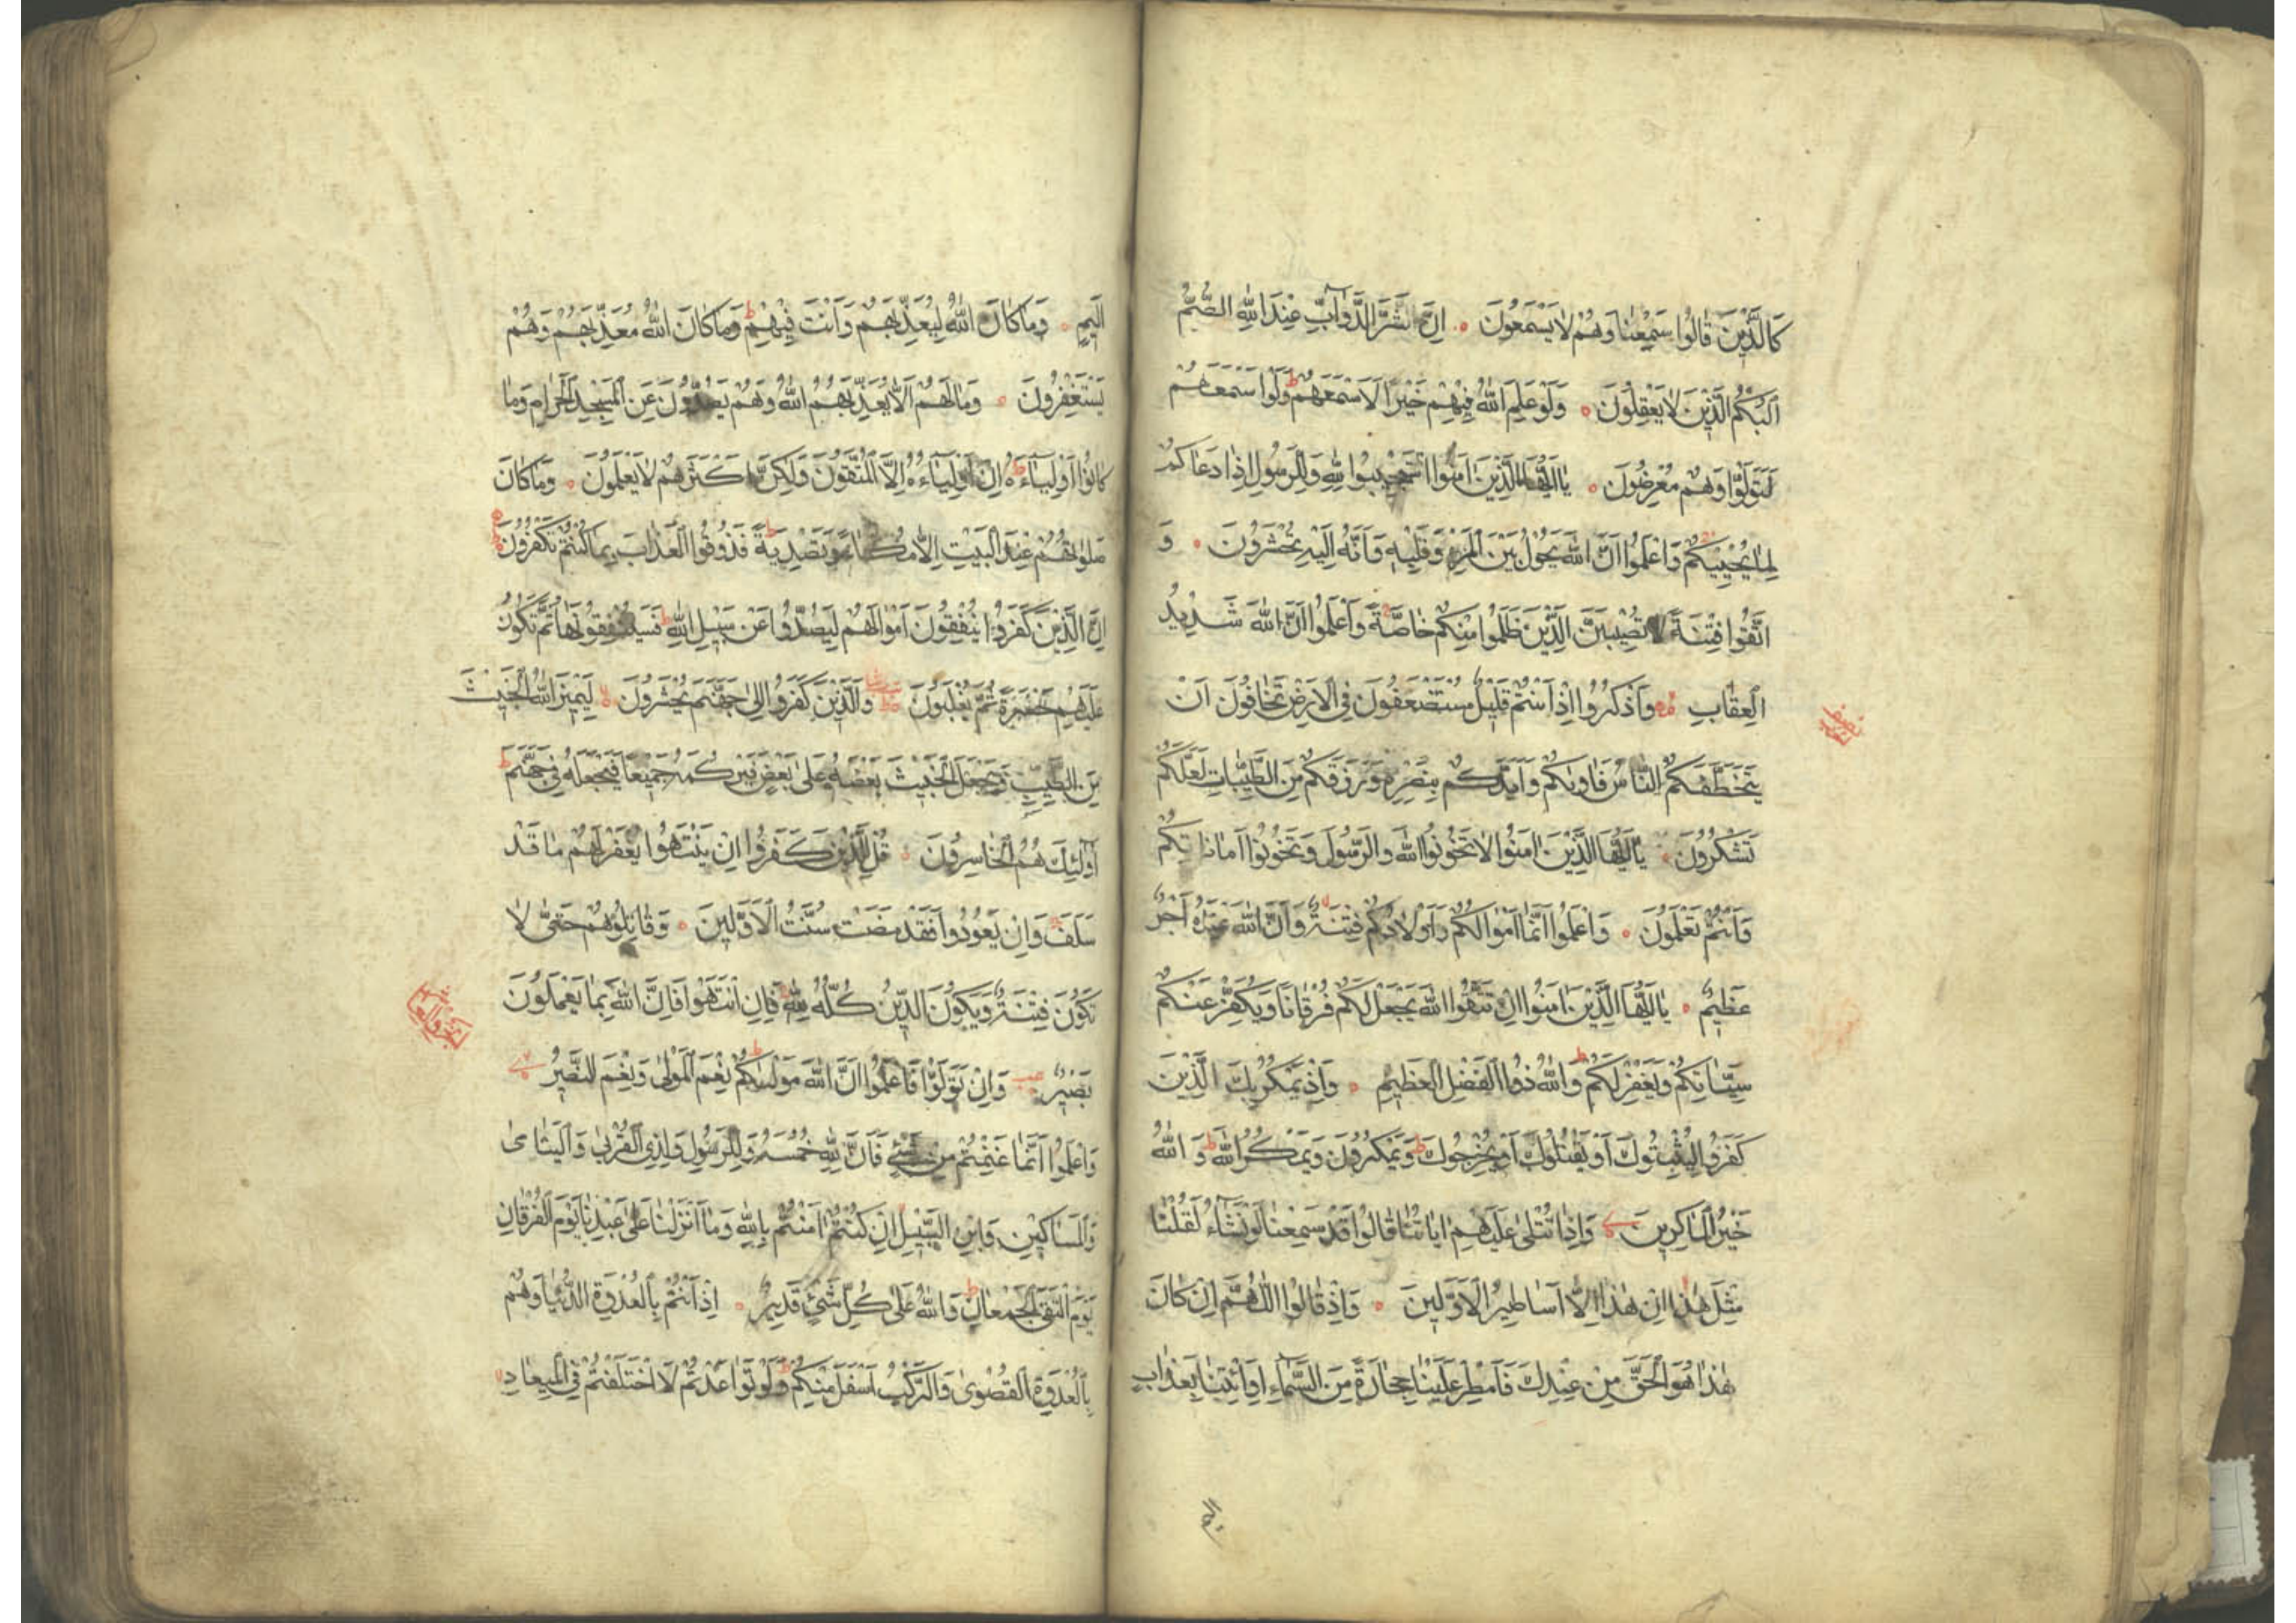 كَالَّذِينَ قَالُوا سَمِعْنَا وَهُمْ لَا يَسْمَعُونَ ۝ اِنَّ شَرَّ الدَّوَآبِّ عِنْدَ اللهِ الصُّمُّ
الْبُكْمُ الَّذِينَ لَا يَعْقِلُونَ ۝ وَلَوْ عَلِمَ اللهُ فِيهِمْ خَيْرًا لَاَسْمَعَهُمْ ط وَلَوْ اَسْمَعَهُمْ
لَتَوَلَّوْا وَهُمْ مُعْرِضُونَ ۝ يَا اَيُّهَا الَّذِينَ اٰمَنُوا اسْتَجِيبُوا لِلّٰهِ وَلِلرَّسُولِ اِذَا دَعَاكُمْ
لِمَا يُحْيِيكُمْ وَاعْلَمُوا اَنَّ اللهَ يَحُولُ بَيْنَ الْمَرْءِ وَقَلْبِهِ وَاَنَّهُ اِلَيْهِ تُحْشَرُونَ ۝ وَ
اتَّقُوا فِتْنَةً لَا تُصِيبَنَّ الَّذِينَ ظَلَمُوا مِنْكُمْ خَاصَّةً وَاعْلَمُوا اَنَّ اللهَ شَدِيدُ
الْعِقَابِ ۝ وَاذْكُرُوا اِذْ اَنْتُمْ قَلِيلٌ مُسْتَضْعَفُونَ فِي الْاَرْضِ تَخَافُونَ اَنْ
يَتَخَطَّفَكُمُ النَّاسُ فَاٰوٰىكُمْ وَاَيَّدَكُمْ بِنَصْرِهِ وَرَزَقَكُمْ مِنَ الطَّيِّبَاتِ لَعَلَّكُمْ
تَشْكُرُونَ ۝ يَا اَيُّهَا الَّذِينَ اٰمَنُوا لَا تَخُونُوا اللهَ وَالرَّسُولَ وَتَخُونُوا اَمَانَاتِكُمْ
وَاَنْتُمْ تَعْلَمُونَ ۝ وَاعْلَمُوا اَنَّمَا اَمْوَالُكُمْ وَاَوْلَادُكُمْ فِتْنَةٌ وَاَنَّ اللهَ عِنْدَهُ اَجْرٌ
عَظِيمٌ ۝ يَا اَيُّهَا الَّذِينَ اٰمَنُوا اِنْ تَتَّقُوا اللهَ يَجْعَلْ لَكُمْ فُرْقَانًا وَيُكَفِّرْ عَنْكُمْ
سَيِّئَاتِكُمْ وَيَغْفِرْ لَكُمْ ط وَاللهُ ذُو الْفَضْلِ الْعَظِيمِ ۝ وَاِذْ يَمْكُرُ بِكَ الَّذِينَ
كَفَرُوا لِيُثْبِتُوكَ اَوْ يَقْتُلُوكَ اَوْ يُخْرِجُوكَ ط وَيَمْكُرُونَ وَيَمْكُرُ اللهُ ط وَاللهُ
خَيْرُ الْمَاكِرِينَ وَاِذَا تُتْلٰى عَلَيْهِمْ اٰيَاتُنَا قَالُوا قَدْ سَمِعْنَا لَوْ نَشَآءُ لَقُلْنَا
مِثْلَ هٰذَا اِنْ هٰذَا اِلَّا اَسَاطِيرُ الْاَوَّلِينَ ۝ وَاِذْ قَالُوا اللّٰهُمَّ اِنْ كَانَ
هٰذَا هُوَ الْحَقَّ مِنْ عِنْدِكَ فَاَمْطِرْ عَلَيْنَا حِجَارَةً مِنَ السَّمَآءِ اَوِ ائْتِنَا بِعَذَابٍ
اَلِيمٍ ۝ وَمَا كَانَ اللهُ لِيُعَذِّبَهُمْ وَاَنْتَ فِيهِمْ ط وَمَا كَانَ اللهُ مُعَذِّبَهُمْ وَهُمْ
يَسْتَغْفِرُونَ ۝ وَمَا لَهُمْ اَلَّا يُعَذِّبَهُمُ اللهُ وَهُمْ يَصُدُّونَ عَنِ الْمَسْجِدِ الْحَرَامِ وَمَا
كَانُوا اَوْلِيَآءَهُ ط اِنْ اَوْلِيَآءُهُ اِلَّا الْمُتَّقُونَ وَلٰكِنَّ اَكْثَرَهُمْ لَا يَعْلَمُونَ ۝ وَمَا كَانَ
صَلٰوتُهُمْ عِنْدَ الْبَيْتِ اِلَّا مُكَآءً وَتَصْدِيَةً ط فَذُوقُوا الْعَذَابَ بِمَا كُنْتُمْ تَكْفُرُونَ
اِنَّ الَّذِينَ كَفَرُوا يُنْفِقُونَ اَمْوَالَهُمْ لِيَصُدُّوا عَنْ سَبِيلِ اللهِ ط فَسَيُنْفِقُونَهَا ثُمَّ تَكُونُ
عَلَيْهِمْ حَسْرَةً ثُمَّ يُغْلَبُونَ وَالَّذِينَ كَفَرُوا اِلٰى جَهَنَّمَ يُحْشَرُونَ ۝ لِيَمِيزَ اللهُ الْخَبِيثَ
مِنَ الطَّيِّبِ وَيَجْعَلَ الْخَبِيثَ بَعْضَهُ عَلٰى بَعْضٍ فَيَرْكُمَهُ جَمِيعًا فَيَجْعَلَهُ فِي جَهَنَّمَ ط
اُولٰٓئِكَ هُمُ الْخَاسِرُونَ ۝ قُلْ لِلَّذِينَ كَفَرُوا اِنْ يَنْتَهُوا يُغْفَرْ لَهُمْ مَا قَدْ
سَلَفَ وَاِنْ يَعُودُوا فَقَدْ مَضَتْ سُنَّتُ الْاَوَّلِينَ ۝ وَقَاتِلُوهُمْ حَتّٰى لَا
تَكُونَ فِتْنَةٌ وَيَكُونَ الدِّينُ كُلُّهُ لِلّٰهِ فَاِنِ انْتَهَوْا فَاِنَّ اللهَ بِمَا يَعْمَلُونَ
بَصِيرٌ وَاِنْ تَوَلَّوْا فَاعْلَمُوا اَنَّ اللهَ مَوْلٰىكُمْ ط نِعْمَ الْمَوْلٰى وَنِعْمَ النَّصِيرُ
وَاعْلَمُوا اَنَّمَا غَنِمْتُمْ مِنْ شَيْءٍ فَاَنَّ لِلّٰهِ خُمُسَهُ وَلِلرَّسُولِ وَلِذِي الْقُرْبٰى وَالْيَتَامٰى
وَالْمَسَاكِينِ وَابْنِ السَّبِيلِ اِنْ كُنْتُمْ اٰمَنْتُمْ بِاللهِ وَمَا اَنْزَلْنَا عَلٰى عَبْدِنَا يَوْمَ الْفُرْقَانِ
يَوْمَ الْتَقَى الْجَمْعَانِ ط وَاللهُ عَلٰى كُلِّ شَيْءٍ قَدِيرٌ ۝ اِذْ اَنْتُمْ بِالْعُدْوَةِ الدُّنْيَا وَهُمْ
بِالْعُدْوَةِ الْقُصْوٰى وَالرَّكْبُ اَسْفَلَ مِنْكُمْ ط وَلَوْ تَوَاعَدْتُمْ لَاخْتَلَفْتُمْ فِي الْمِيعَادِ لا